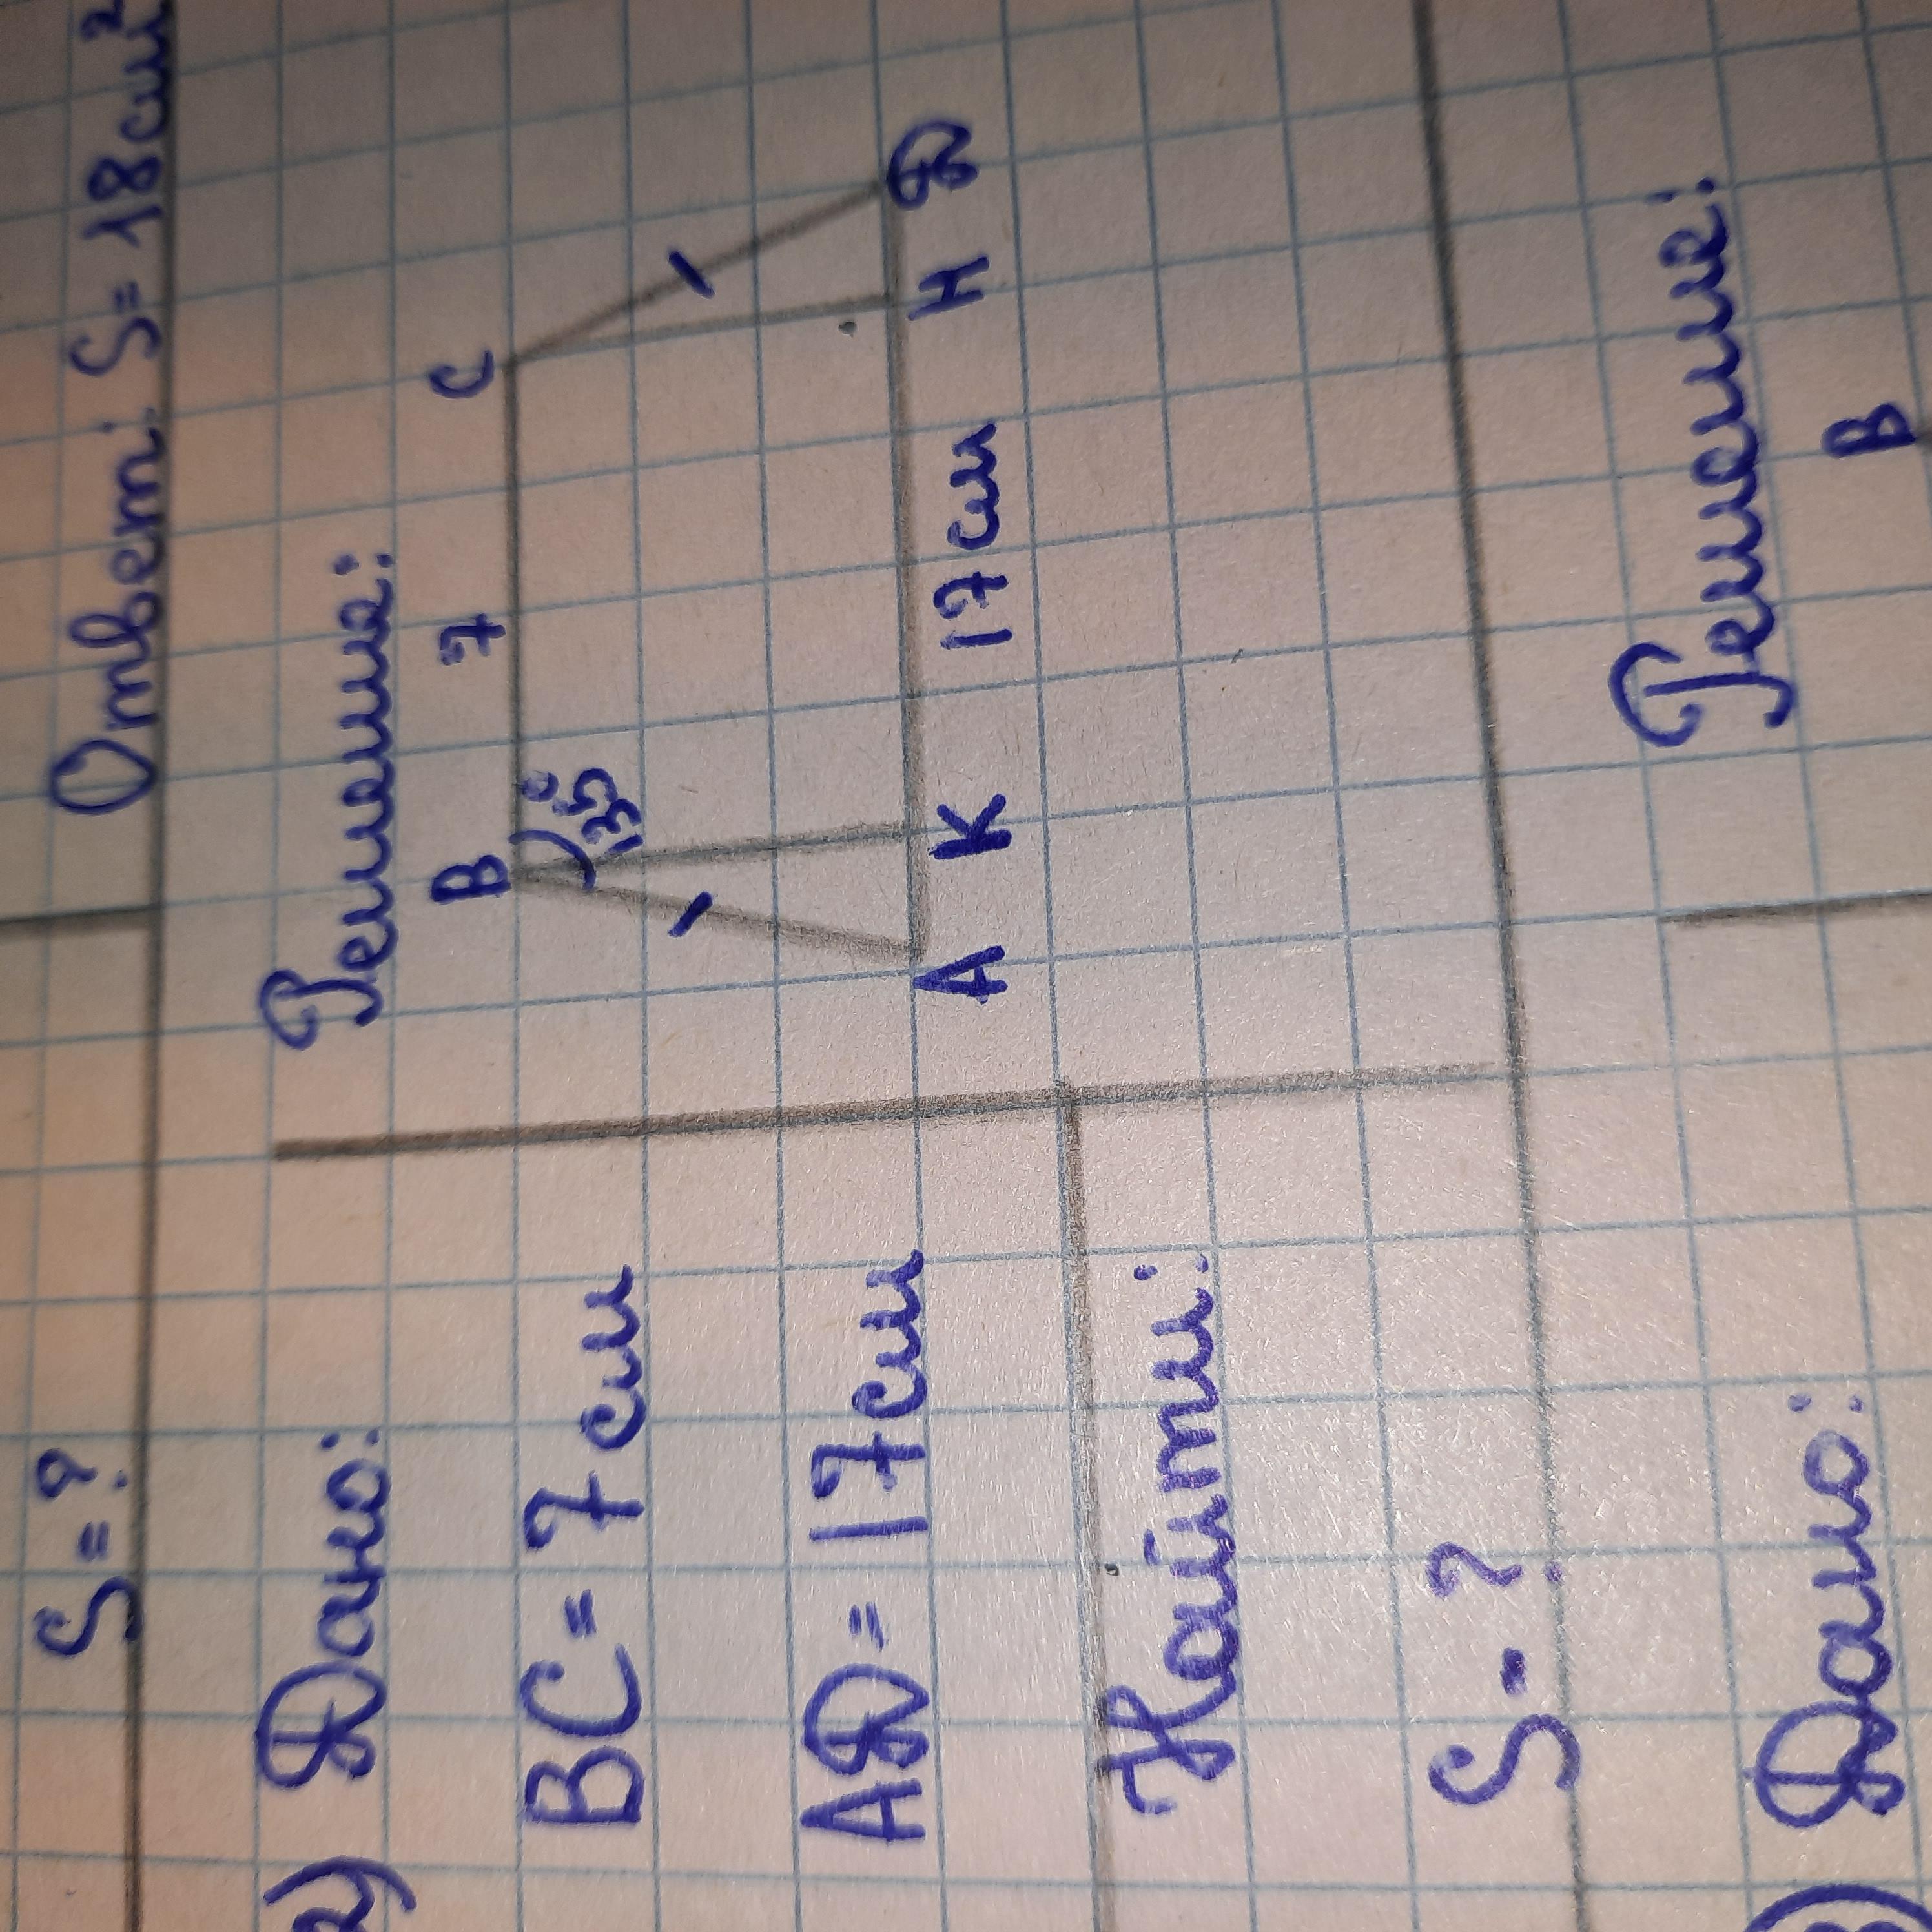 S = ?
Ответ: S = 18 см²
2) Дано:
BC = 7 см
AD = 17 см
Найти:
S - ?
Решение:
B 7 C
135°
A K 17 см H D
Дано:
Решение:
B